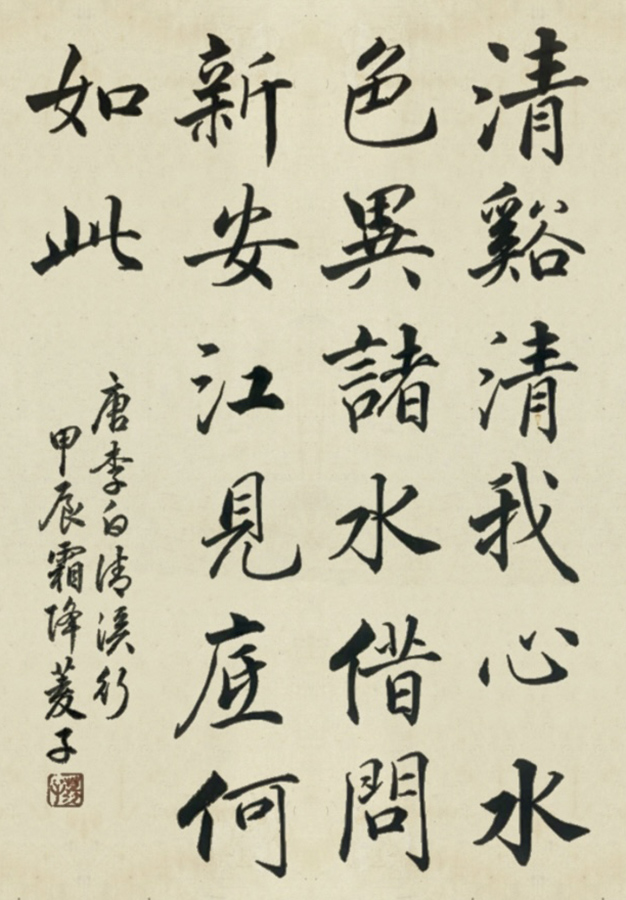 清谿清我心水
色異諸水借問
新安江見底何
如此
唐李白清溪行
甲辰霜降菱子